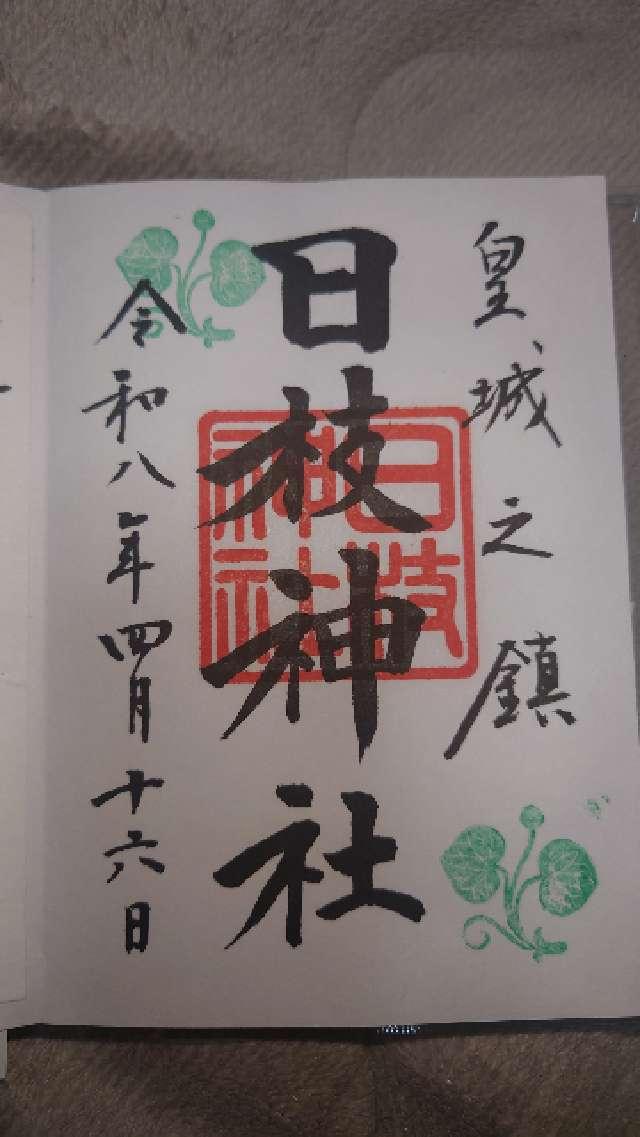 皇城之鎮
日枝神社
日枝神社
令和八年四月十六日